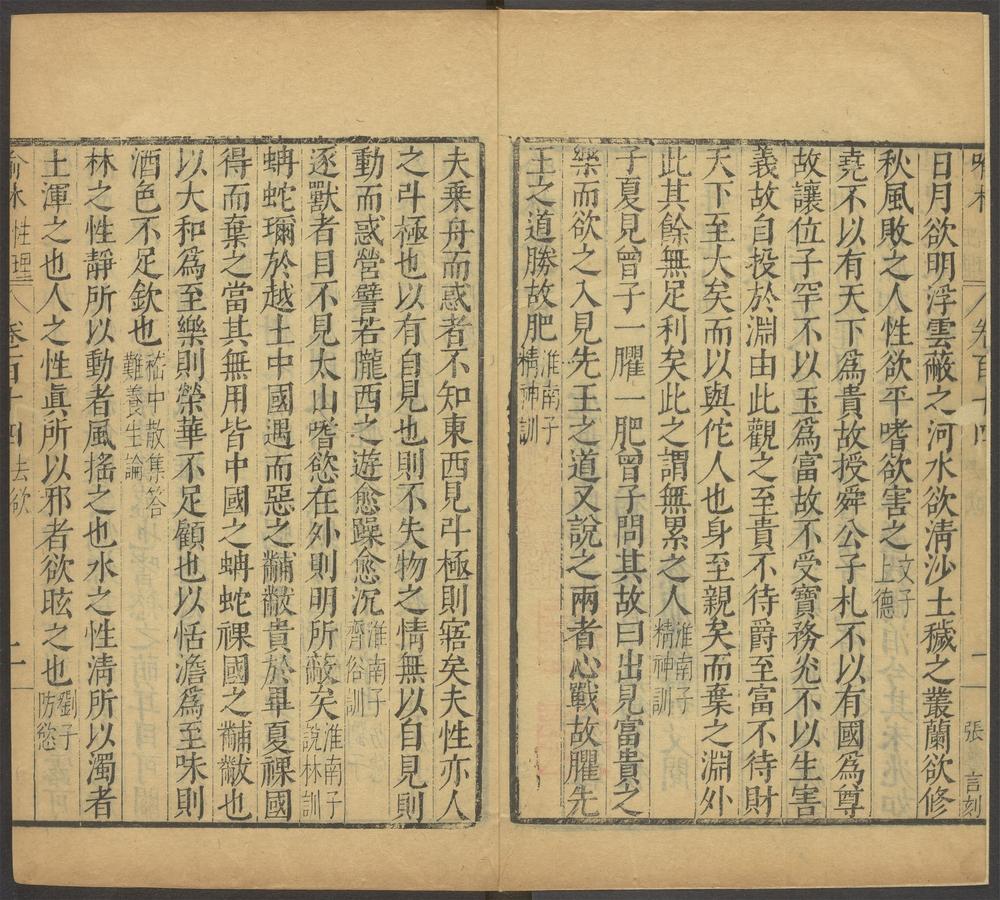 喻林
卷百十四
二
張 言刻
日月欲明浮雲蔽之河水欲清沙土穢之叢蘭欲修
秋風敗之人性欲平嗜欲害之文子上德
堯不以有天下爲貴故授舜公子札不以有國爲尊
故讓位子罕不以玉爲富故不受寶務光不以生害
義故自投於淵由此觀之至貴不待爵至富不待財
天下至大矣而以與佗人也身至親矣而棄之淵外
此其餘無足利矣此之謂無累之人淮南子精神訓
子夏見曾子一臞一肥曾子問其故曰出見富貴之
樂而欲之入見先王之道又說之兩者心戰故臞先
王之道勝故肥淮南子精神訓
夫乗舟而惑者不知東西見斗極則寤矣夫性亦人
之斗極也以有自見也則不失物之情無以自見則
動而惑營譬若隴西之遊愈躁愈沉淮南子齊俗訓
逐獸者目不見太山嗜慾在外則明所蔽矣淮南子說林訓
蚺蛇珍於越土中國遇而惡之黼黻貴於華夏裸國
得而棄之當其無用皆中國之蚺蛇裸國之黼黻也
以大和爲至樂則榮華不足顧也以恬澹爲至味則
酒色不足欽也嵇中散集答難養生論
林之性靜所以動者風搖之也水之性清所以濁者
土渾之也人之性眞所以邪者欲眩之也劉子防慾
喻林 性理 卷百十四 去欲
二